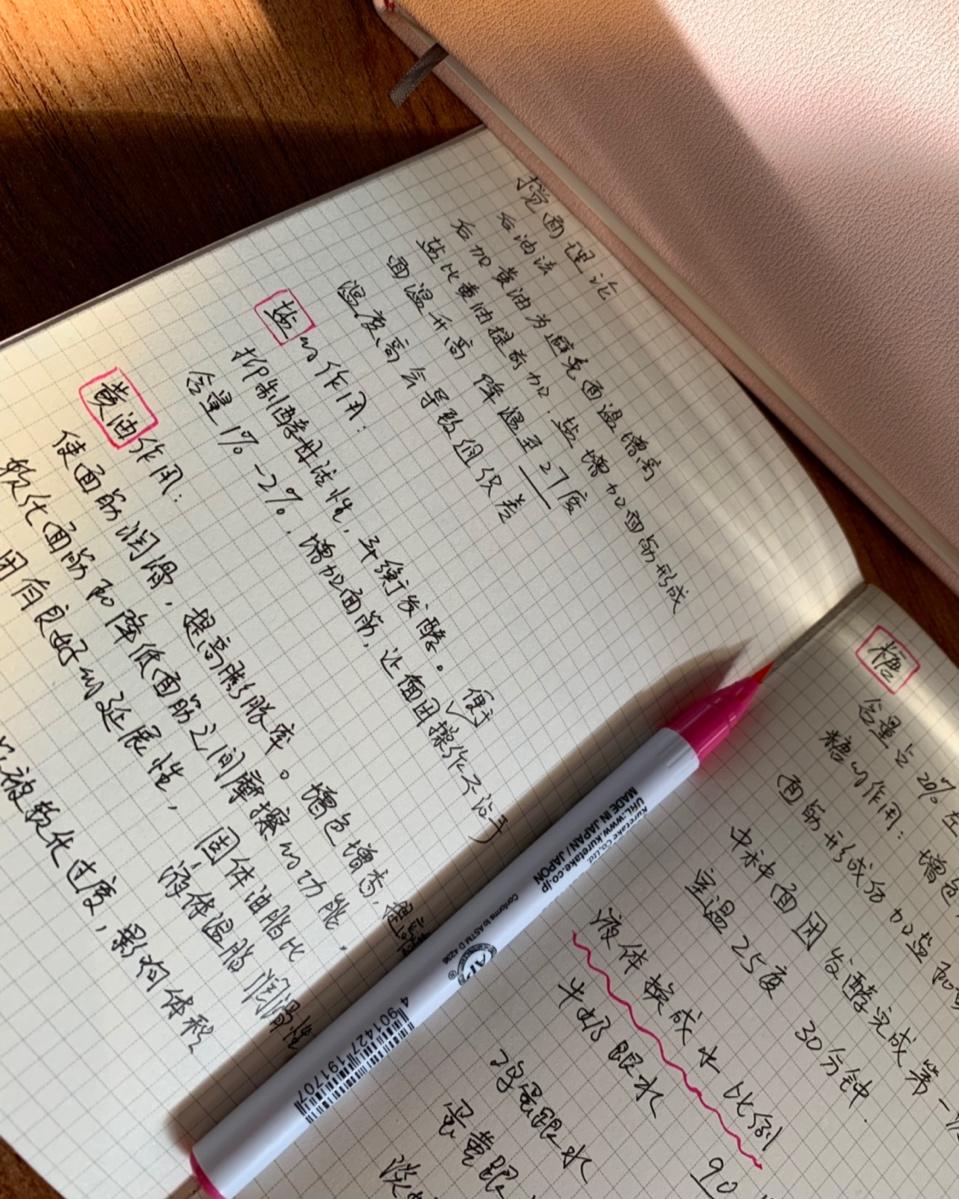 搅面理论
后油法
后加黄油为避免面温增高
盐比黄油提前加，盐增加面筋形成
面温升高 降温至27度
温度高会导致组织差
盐的作用：
抑制酵母活性，平衡发酵。
含量1%-2%，增加面筋，让面团操作不沾手
便于
黄油作用：
使面筋润滑，提高膨胀率。增色增香，
软化面筋和降低面筋之间摩擦的功能，
团有良好的延展性，固体油脂比
液体温脂润滑性
被软化过度，影响体积
糖
含量占20%左
糖的作用：增色
面筋形成后加盐和
中种面团发酵完成第一
室温25度 30分钟.
液体换成水比例
牛奶跟水 90
鸡蛋跟水
蛋黄跟
淡奶
Kuretake Co., Ltd.
URL:www.kuretake.co.jp
MADE IN JAPAN / JAPON
Conforms to ASTM D 4236
AP
4 901427 191707